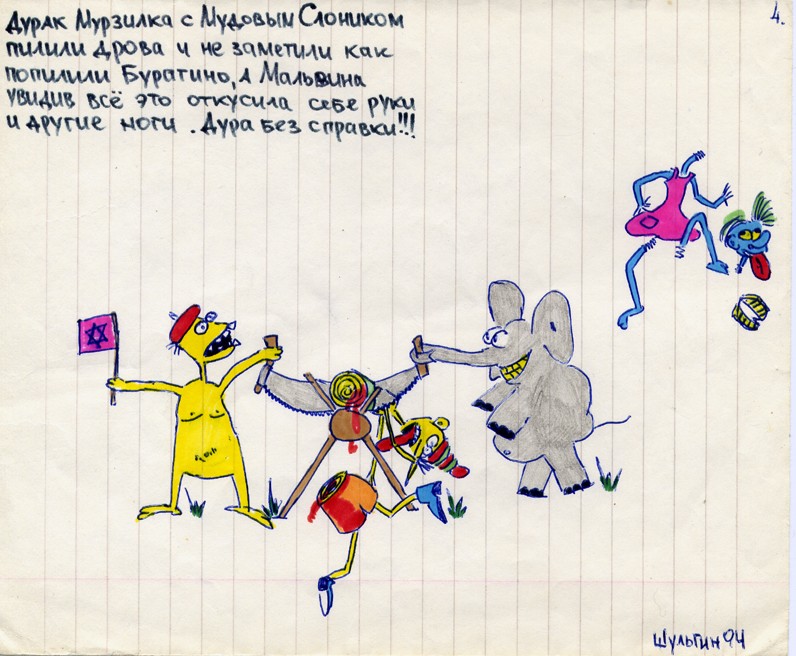 4.
Дурак Мурзилка с Мудовым Слоником
пилили дрова и не заметили как
попилили Буратино, а Мальвина
увидив всё это откусила себе руки
и другие ноги . Дура без справки!!!
Шульгин 94